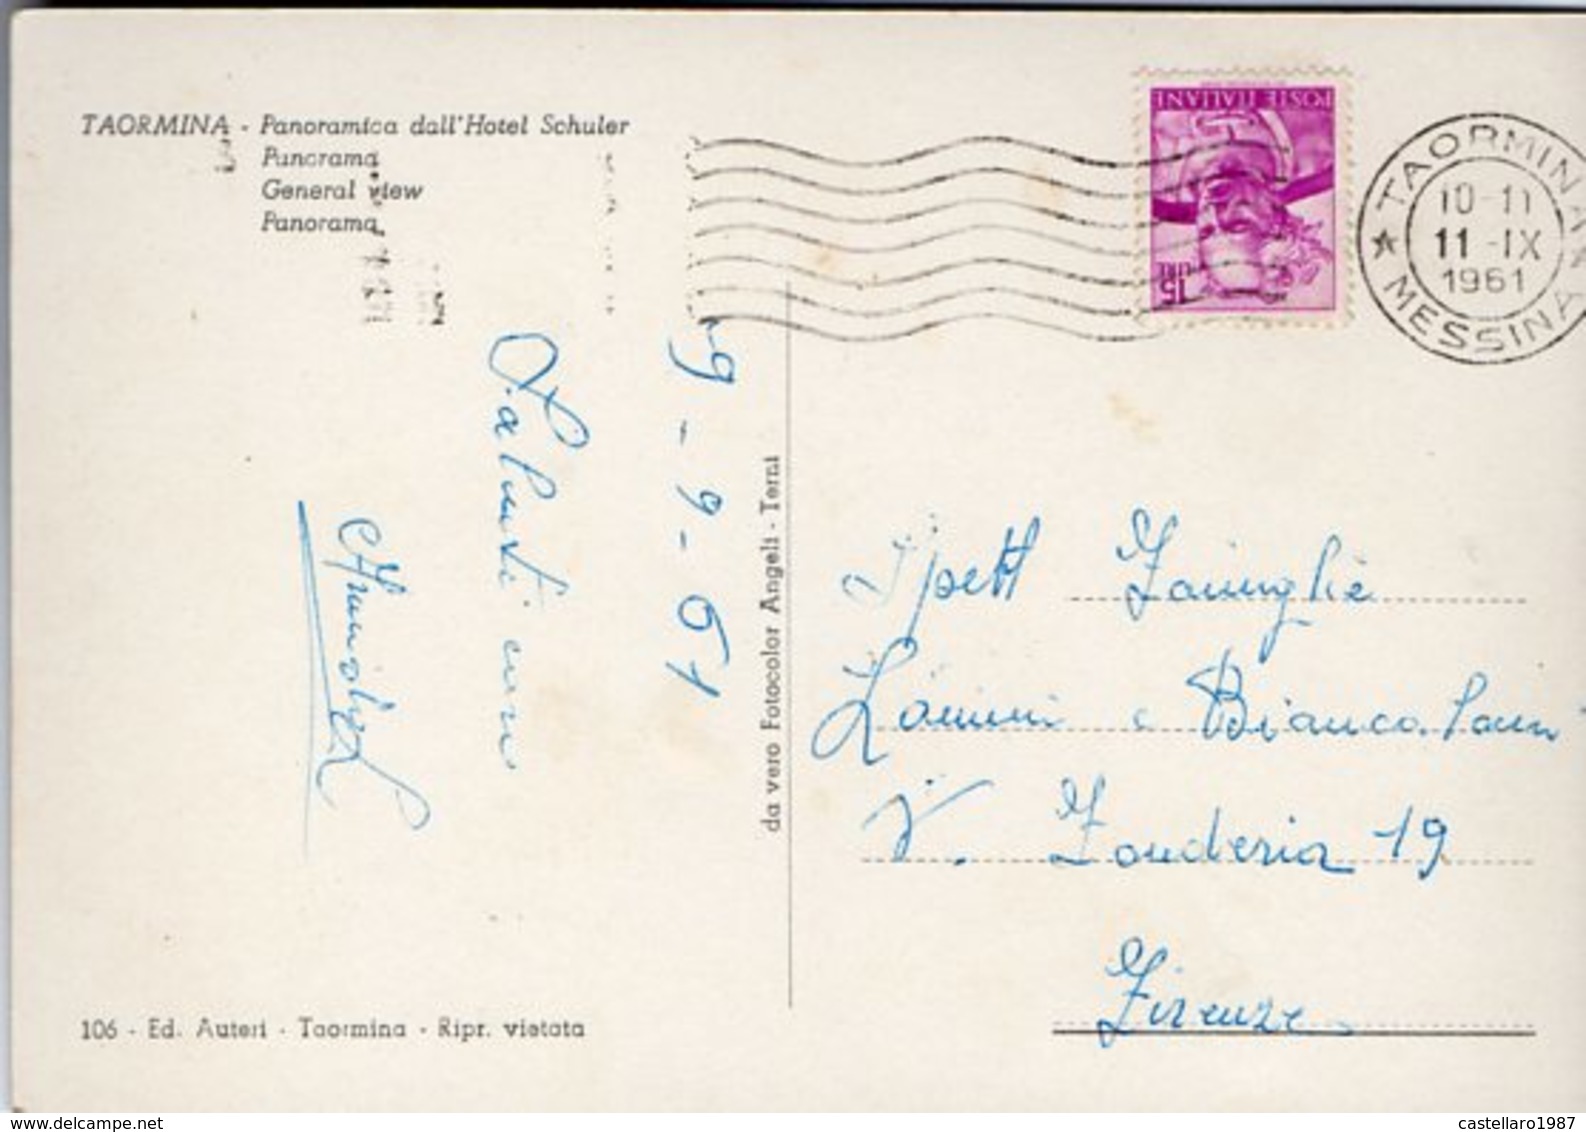 TAORMINA - Panoramica dall'Hotel Schuler
Panorama
General view
Panorama
POSTE ITALIANE
15 LIRE
TAORMINA
MESSINA
10-11
11-IX
1961
9-9-61
Saluti cari
da vero Fotocolor Angeli - Terni
Spett Famiglia
e Bianca
V. Fonderia 19
Firenze
106 - Ed. Auteri - Taormina - Ripr. vietata
www.delcampe.net
castellaro1987